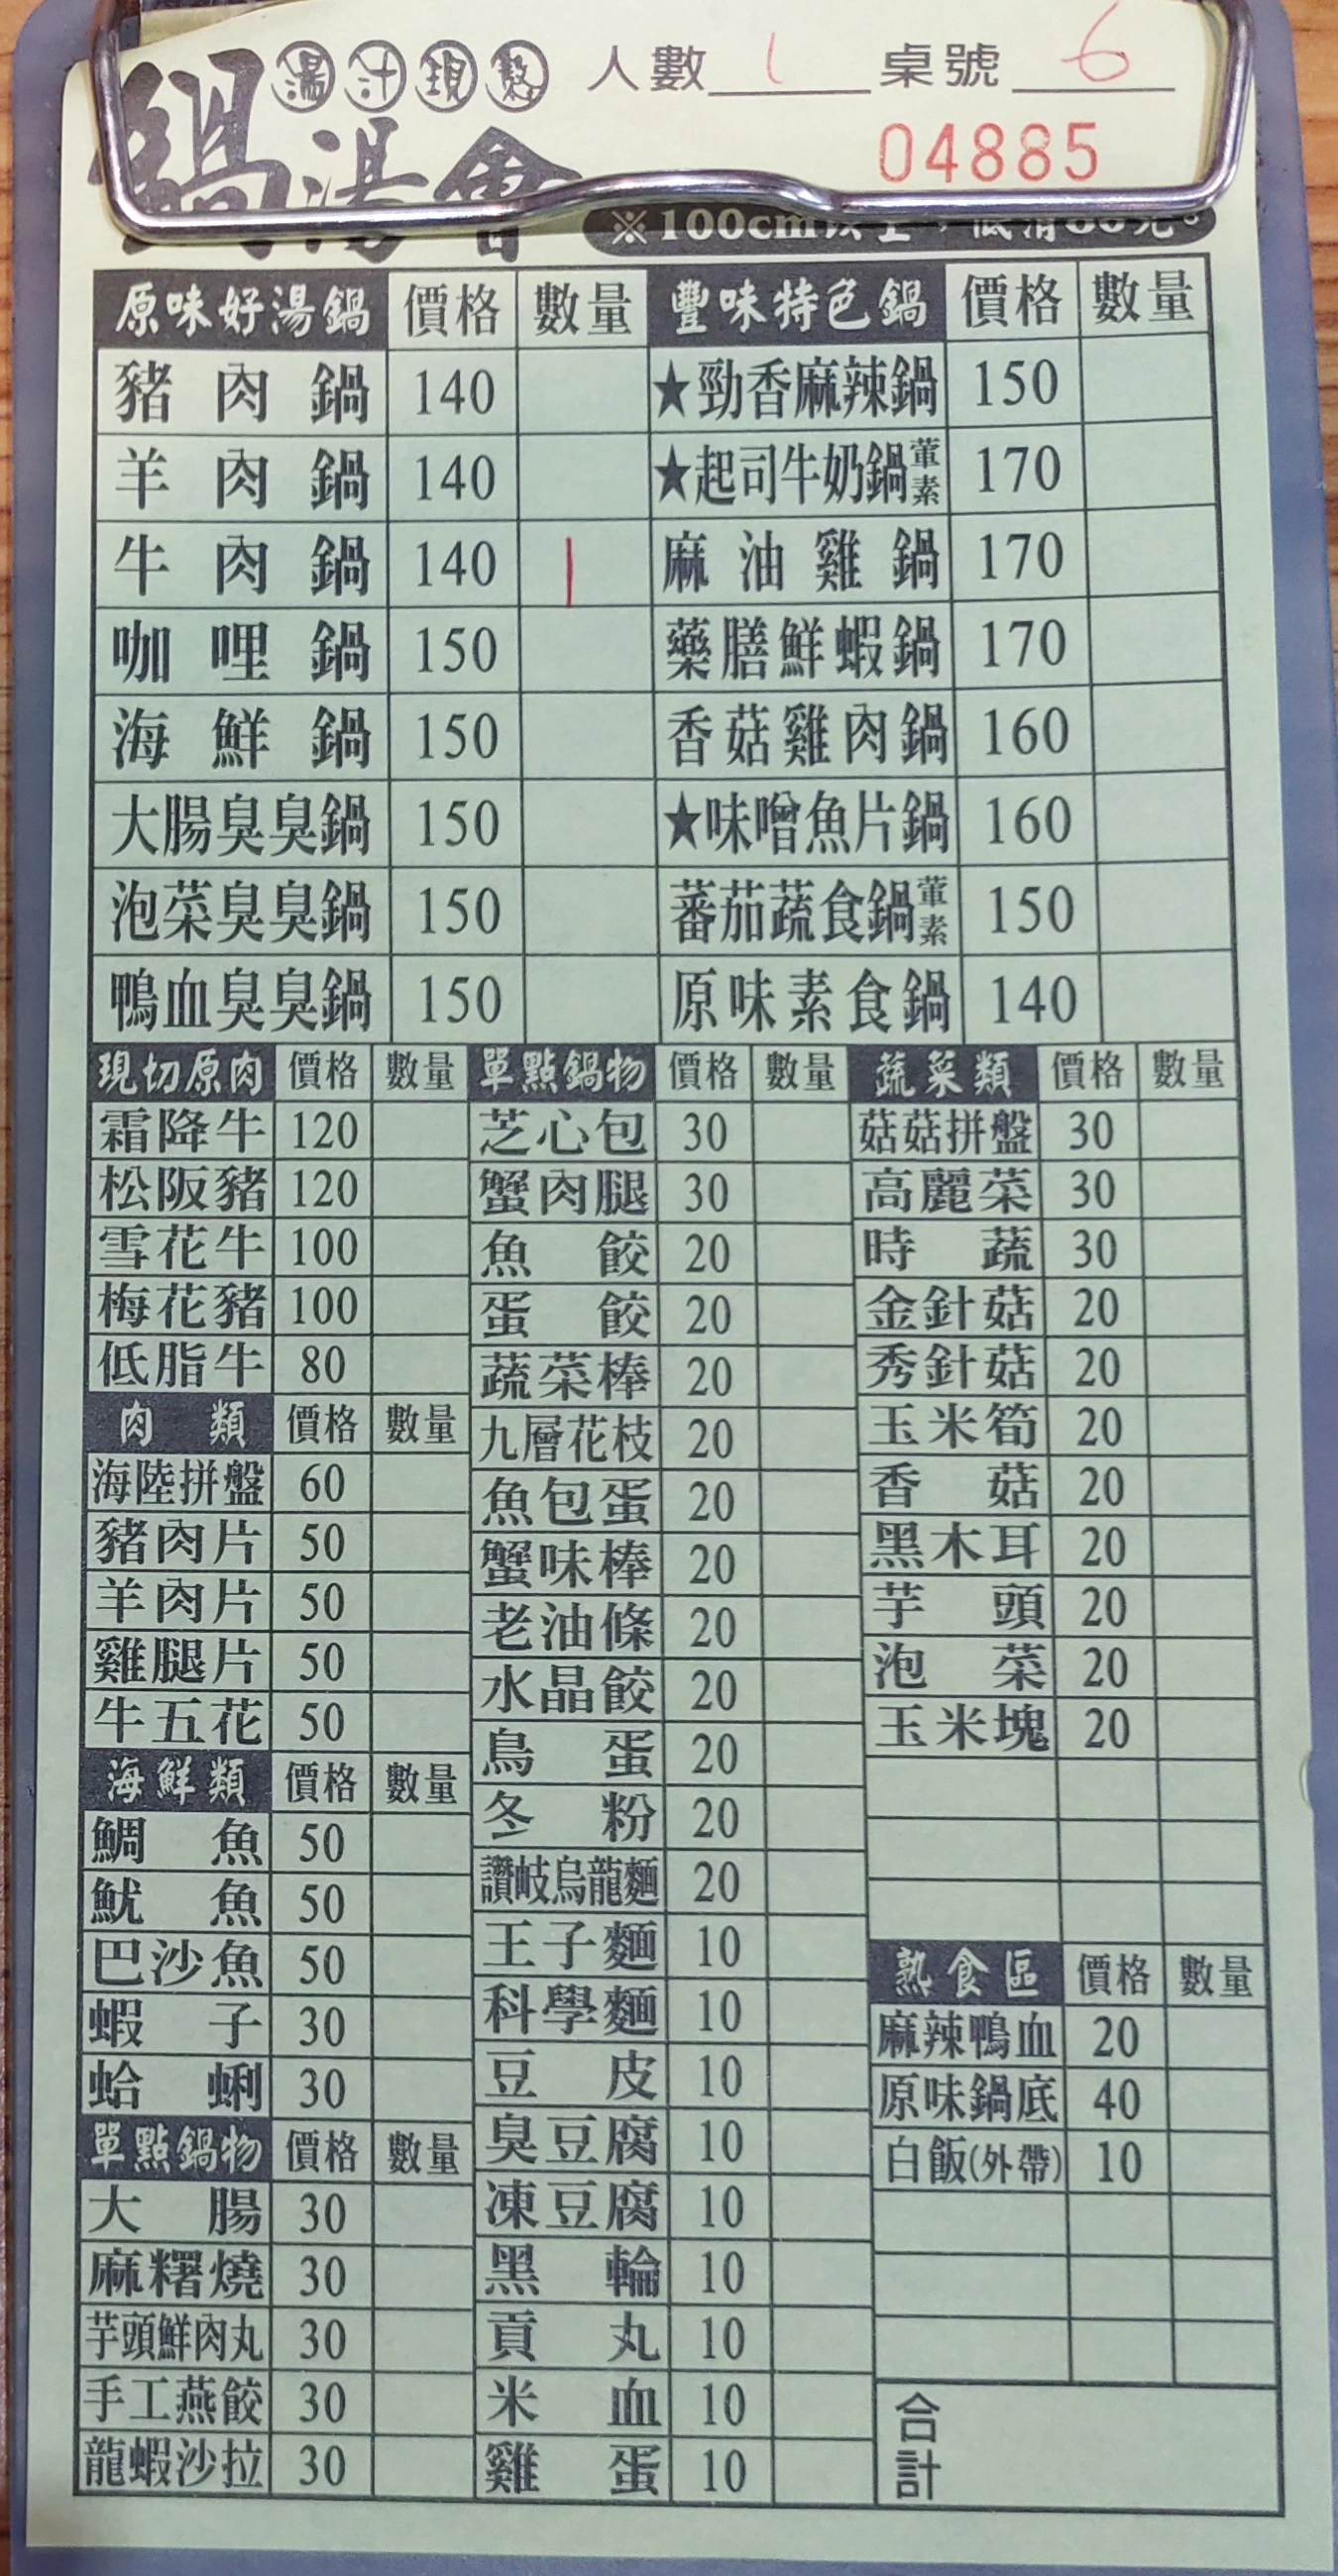 湯汁現熬 人數 1 桌號 6
鍋湯會 04885
※100cm以上，低消80元。
原味好湯鍋 價格 數量 豐味特色鍋 價格 數量
豬肉鍋 140 ★勁香麻辣鍋 150
羊肉鍋 140 ★起司牛奶鍋葷素 170
牛肉鍋 140 | 麻油雞鍋 170
咖哩鍋 150 藥膳鮮蝦鍋 170
海鮮鍋 150 香菇雞肉鍋 160
大腸臭臭鍋 150 ★味噌魚片鍋 160
泡菜臭臭鍋 150 蕃茄蔬食鍋葷素 150
鴨血臭臭鍋 150 原味素食鍋 140
現切原肉 價格 數量
霜降牛 120
松阪豬 120
雪花牛 100
梅花豬 100
低脂牛 80
肉類 價格 數量
海陸拼盤 60
豬肉片 50
羊肉片 50
雞腿片 50
牛五花 50
海鮮類 價格 數量
鯛魚 50
魷魚 50
巴沙魚 50
蝦子 30
蛤蜊 30
單點鍋物 價格 數量
大腸 30
麻糬燒 30
芋頭鮮肉丸 30
手工燕餃 30
龍蝦沙拉 30
單點鍋物 價格 數量
芝心包 30
蟹肉腿 30
魚餃 20
蛋餃 20
蔬菜棒 20
九層花枝 20
魚包蛋 20
蟹味棒 20
老油條 20
水晶餃 20
鳥蛋 20
冬粉 20
讚岐烏龍麵 20
王子麵 10
科學麵 10
豆皮 10
臭豆腐 10
凍豆腐 10
黑輪 10
貢丸 10
米血 10
雞蛋 10
蔬菜類 價格 數量
菇菇拼盤 30
高麗菜 30
時蔬 30
金針菇 20
秀針菇 20
玉米筍 20
香菇 20
黑木耳 20
芋頭 20
泡菜 20
玉米塊 20
熟食區 價格 數量
麻辣鴨血 20
原味鍋底 40
白飯(外帶) 10
合計